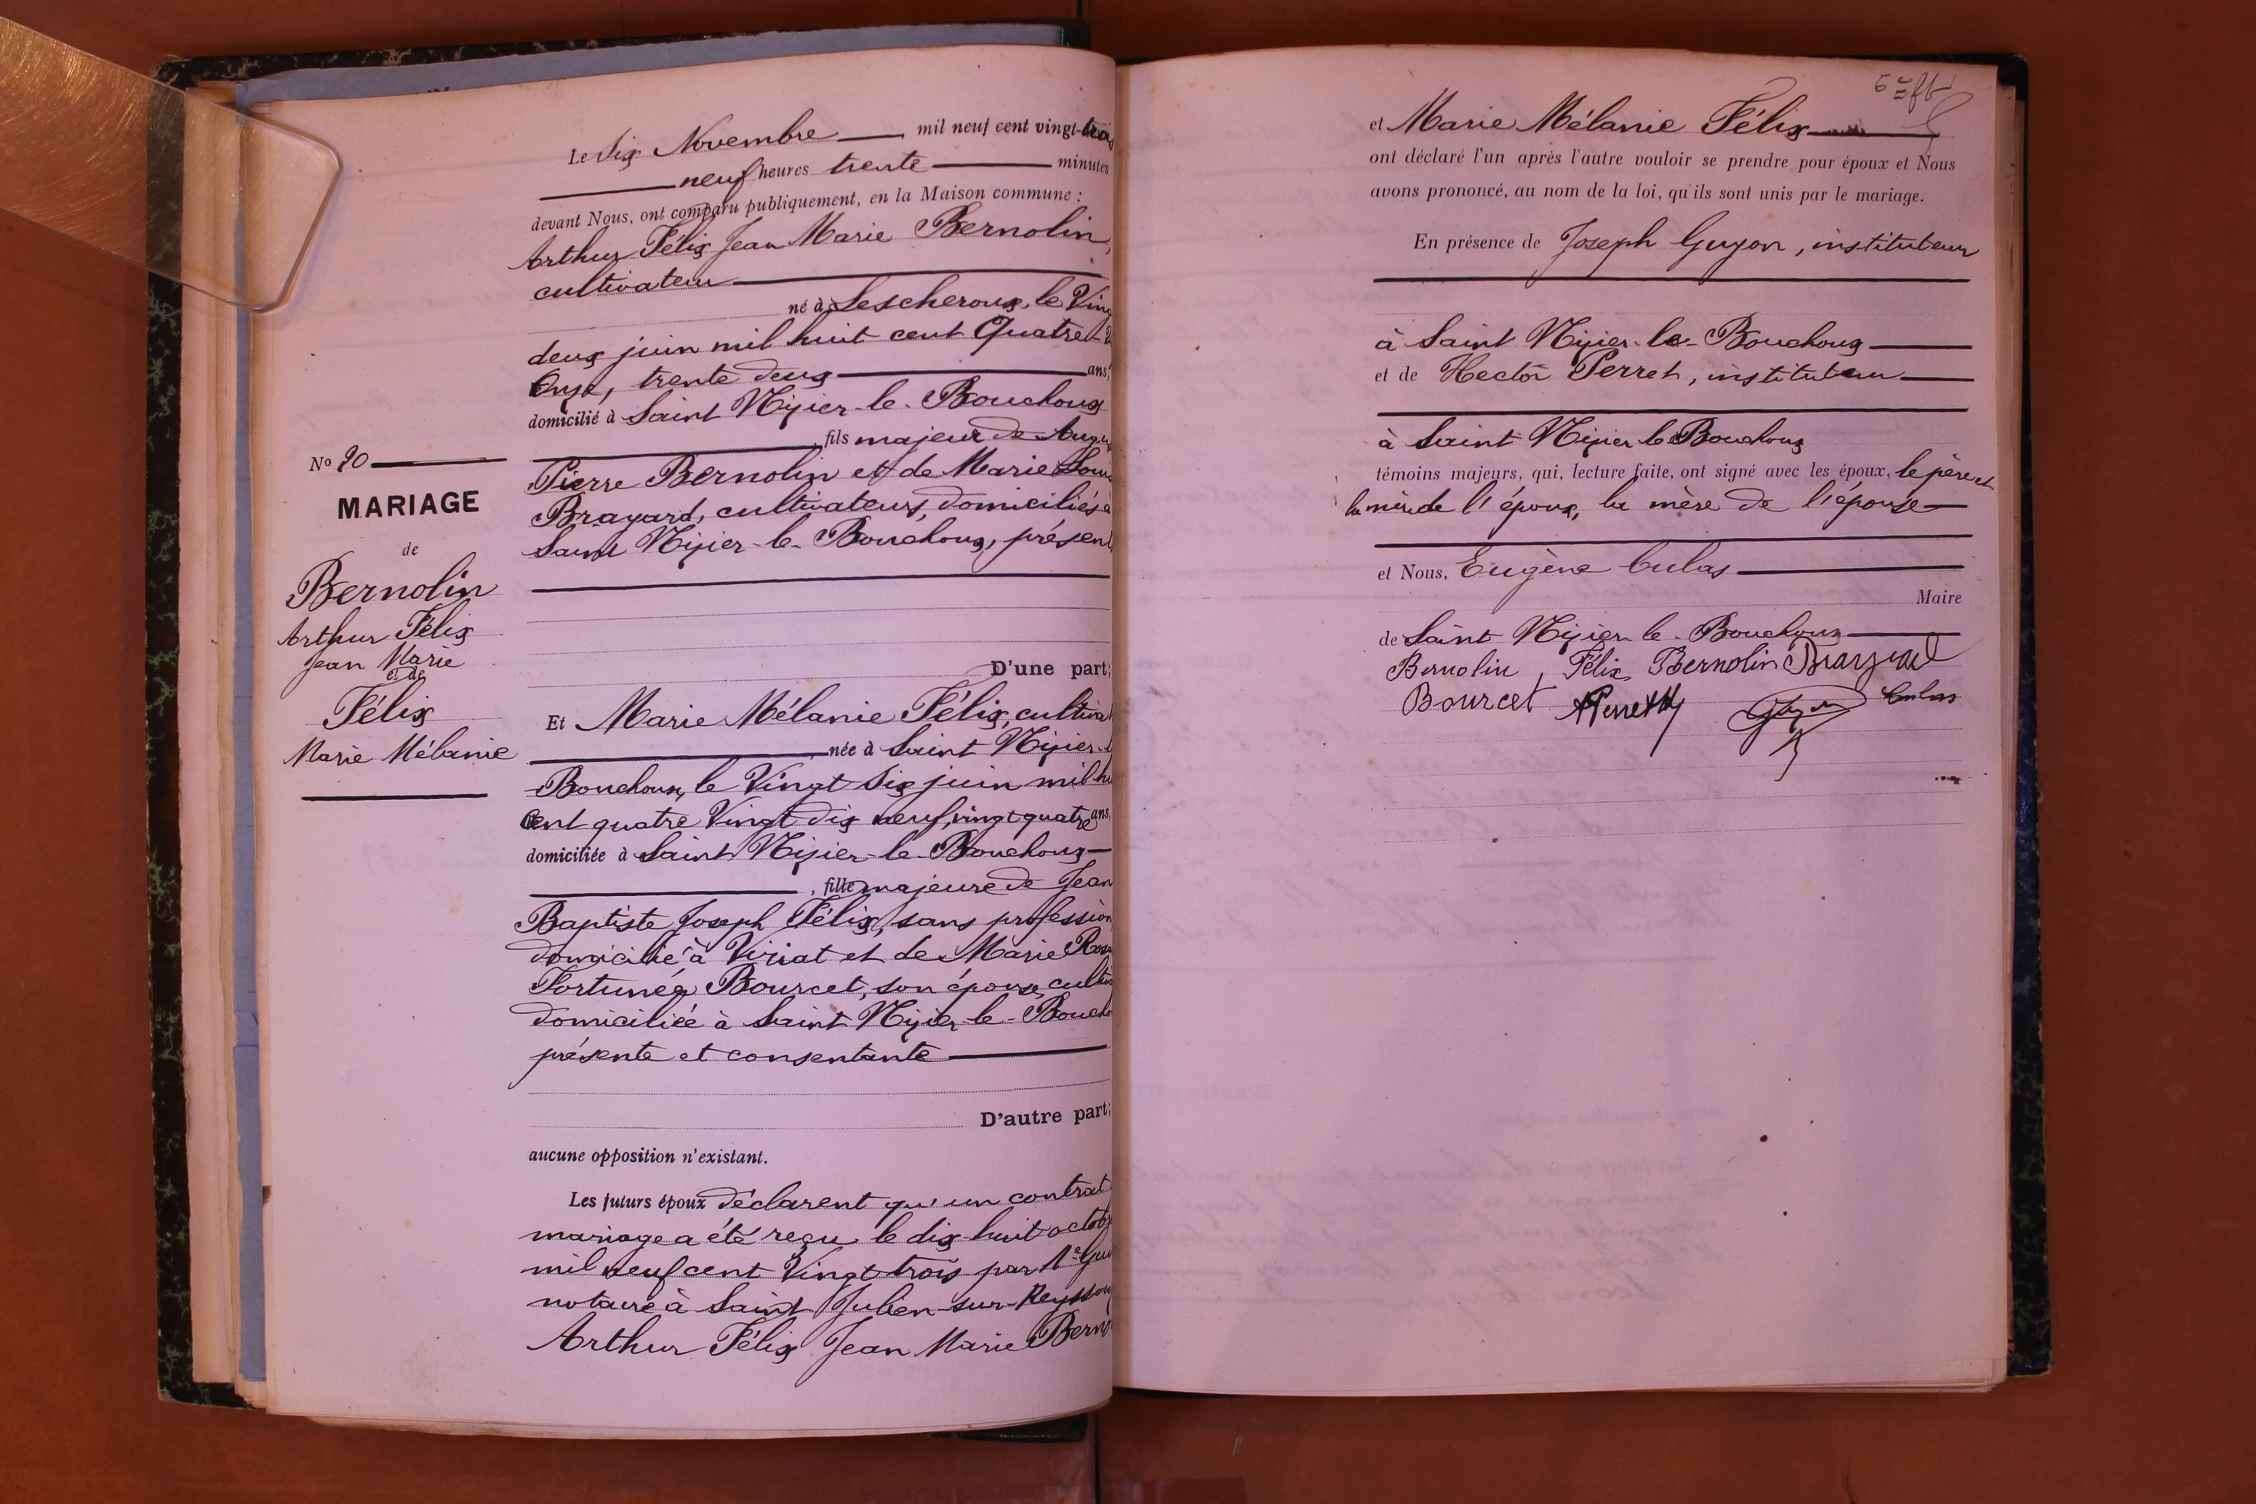 Le six Novembre mil neuf cent vingt-trois
neuf heures trente minutes
devant Nous, ont comparu publiquement, en la Maison commune :
Arthur Félix Jean Marie Bernolin,
cultivateur
né à Lescheroux, le Ving
deux juin mil huit cent Quatre-
Onze, trente deux ans,
domicilié à Saint Nizier-le-Bouchoux
, fils majeur de Augu
Pierre Bernolin et de Marie Loui
Brayard, cultivateurs, domiciliés à
Saint Nizier-le-Bouchoux, présent
No 20
MARIAGE
de
Bernolin
Arthur Félix
Jean Marie
et de
Félix
Marie Mélanie
D'une part;
Et Marie Mélanie Félix, cultivat
, née à Saint Nizier-l
Bouchoux, le Vingt six juin mil hu
Cent quatre Vingt dix neuf, vingt quatre ans,
domiciliée à Saint Nizier-le-Bouchoux
, fille majeure de Jean
Baptiste Joseph Félix, sans profession
domicilié à Viriat et de Marie Rose
Fortunée Bourcet, son épouse, cultiv
domiciliée à Saint Nizier-le-Boucho
présente et consentante
D'autre part;
aucune opposition n'existant.
Les futurs époux déclarent qu'un contrat
mariage a été reçu le dix-huit octob
mil neuf cent Vingt trois par
notaire à Saint Julien-sur-Reyssou
Arthur Félix Jean Marie Berno
et Marie Mélanie Félix
ont déclaré l'un après l'autre vouloir se prendre pour époux et Nous
avons prononcé, au nom de la loi, qu'ils sont unis par le mariage.
En présence de Joseph Guyon, instituteur
à Saint Nizier-le-Bouchoux
et de Hector Perret, instituteur
à Saint Nizier le Bouchoux
témoins majeurs, qui, lecture faite, ont signé avec les époux, le père et
la mère de l'époux, la mère de l'épouse
et Nous, Eugène Culas
Maire
de Saint Nizier-le-Bouchoux
Bernolin, Félix Bernolin Brayard
Bourcet HPerret Guyon Culas